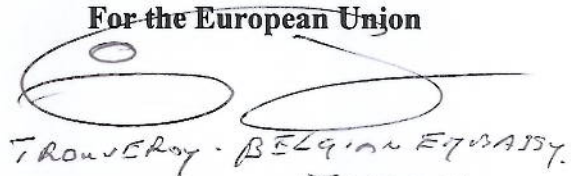 For the European Union
TROUVEROY. BELGIAN EMBASSY.